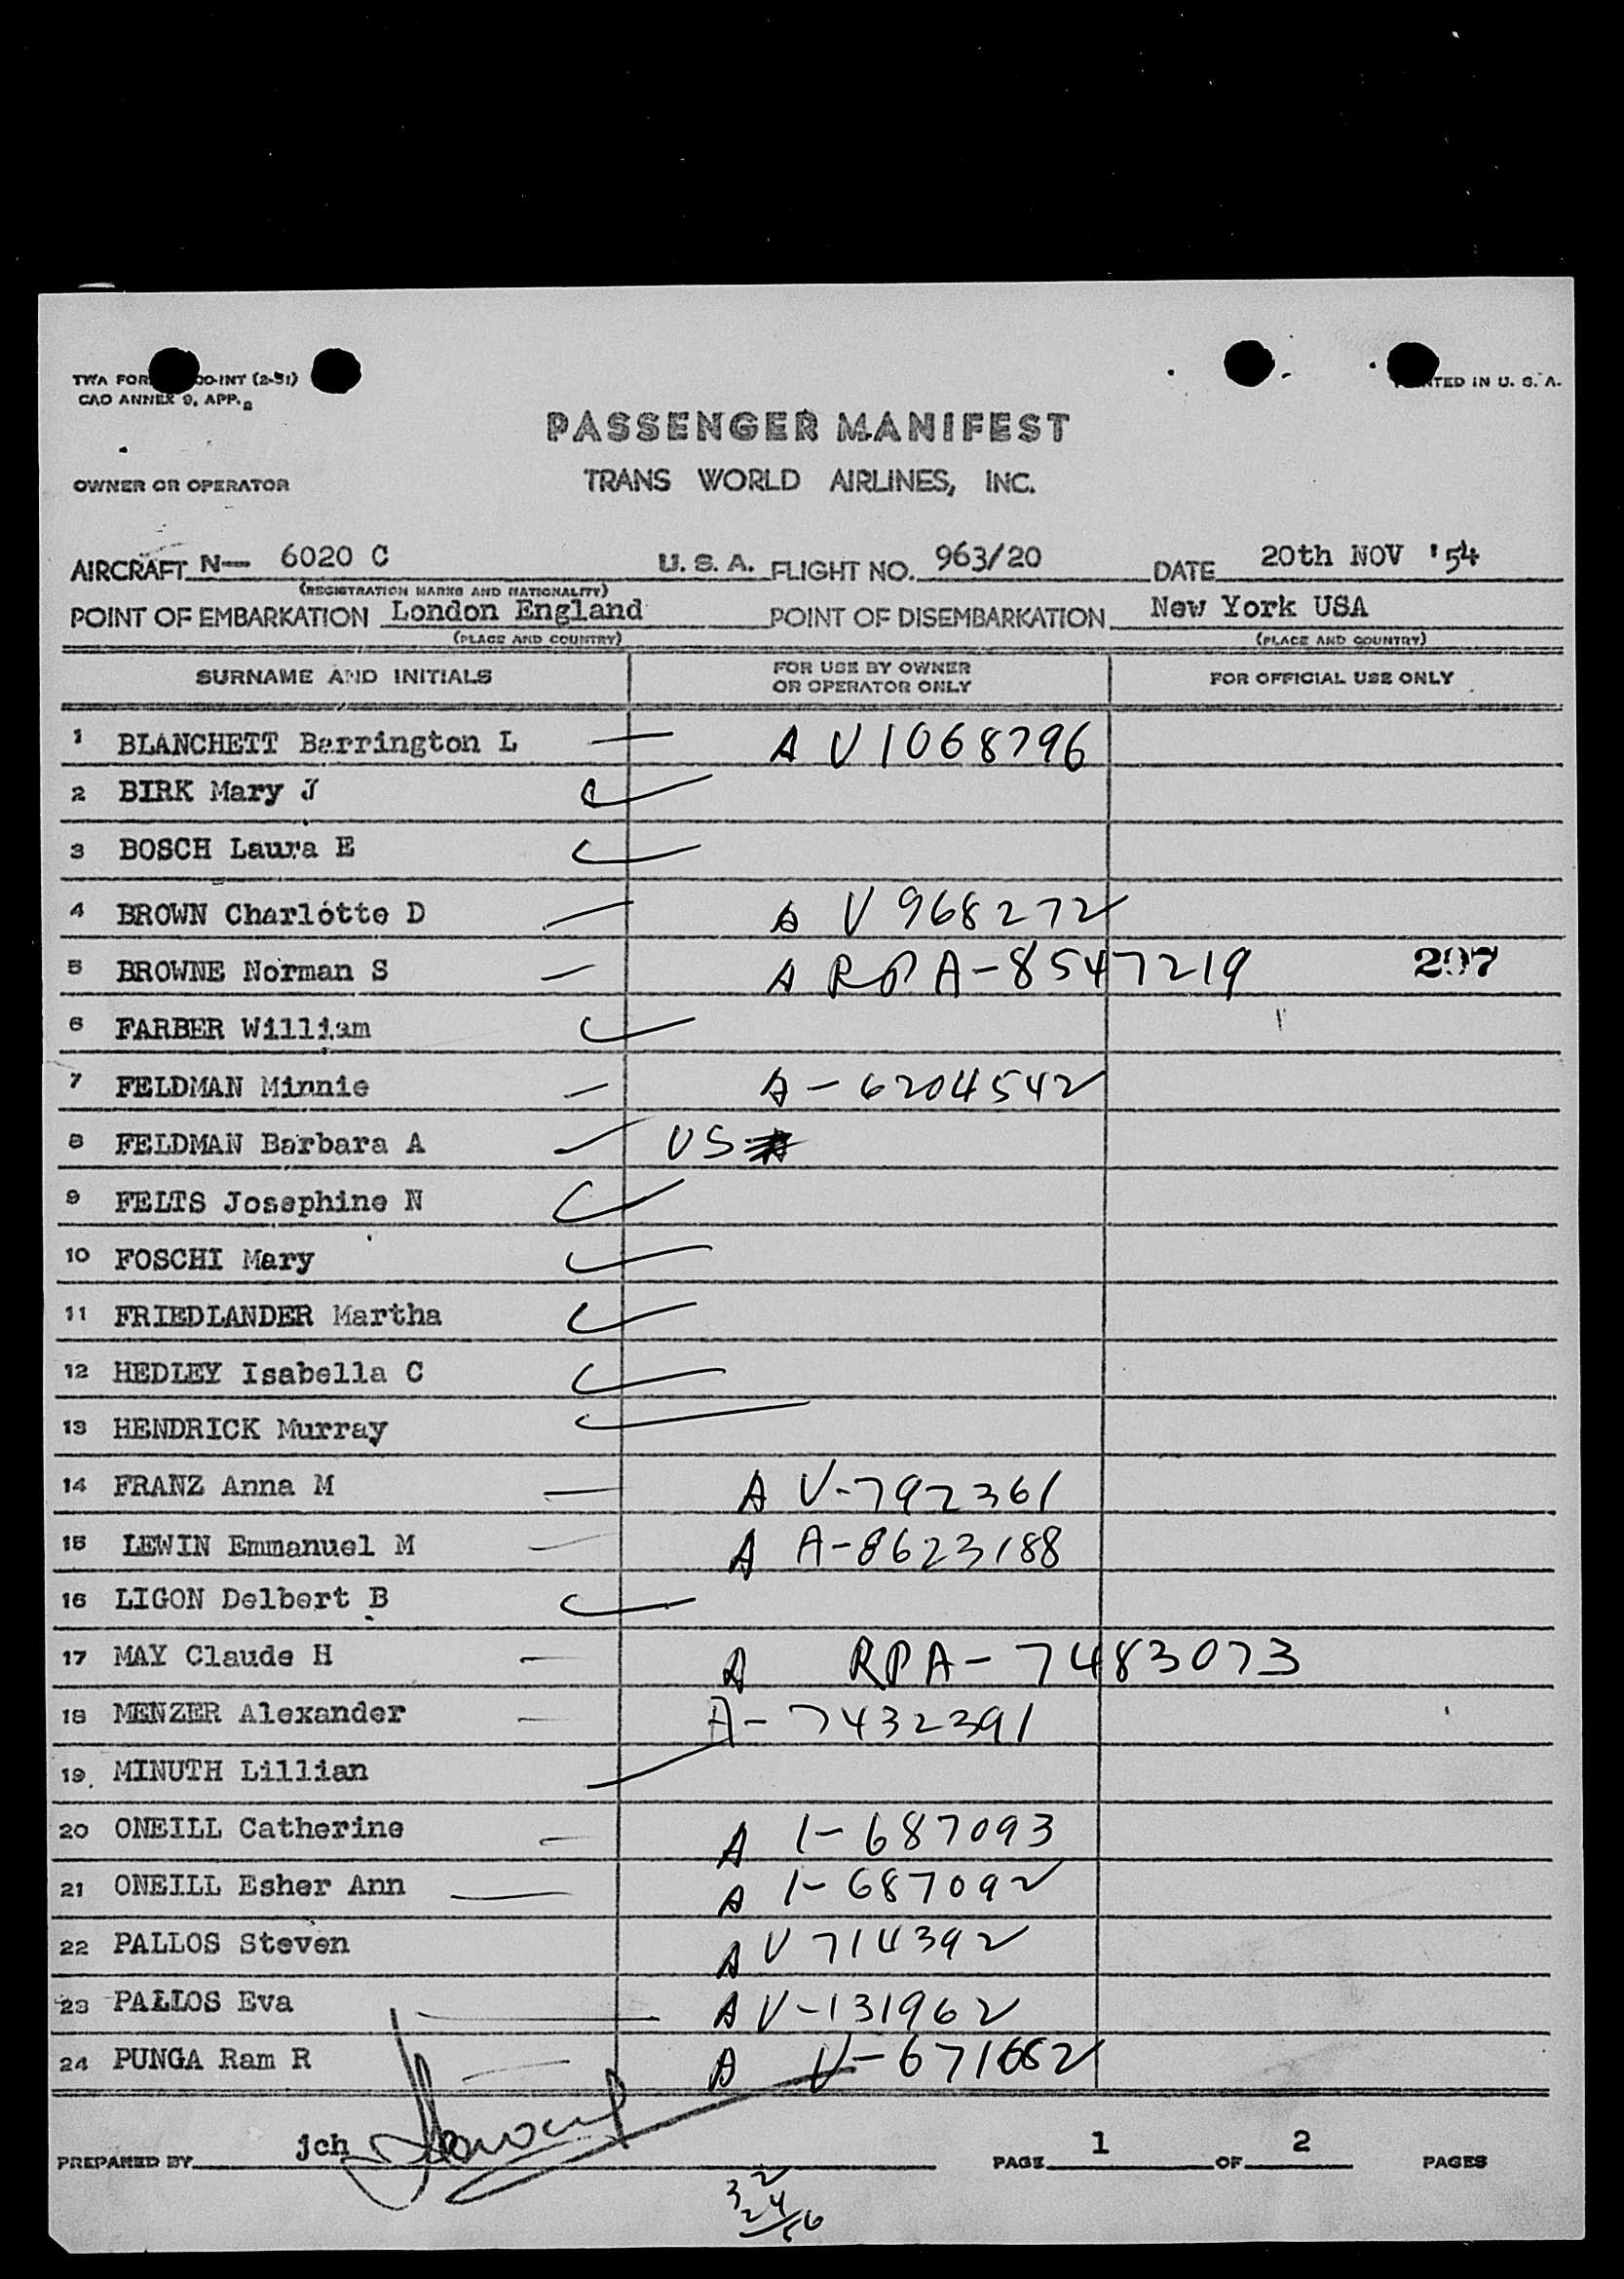 TWA FOR OO-INT (2-51)
CAO ANNEX 9, APP. 2
TED IN U. S. A.
PASSENGER MANIFEST
OWNER OR OPERATOR TRANS WORLD AIRLINES, INC.
AIRCRAFT N— 6020 C U. S. A. FLIGHT NO. 963/20 DATE 20th NOV '54
(REGISTRATION MARKS AND NATIONALITY)
POINT OF EMBARKATION London England POINT OF DISEMBARKATION New York USA
(PLACE AND COUNTRY) (PLACE AND COUNTRY)
SURNAME AND INITIALS FOR USE BY OWNER OR OPERATOR ONLY FOR OFFICIAL USE ONLY
1 BLANCHETT Barrington L — A V1068796
2 BIRK Mary J ✓
3 BOSCH Laura E ✓
4 BROWN Charlotte D — A V 968272
5 BROWNE Norman S — A RPA-8547219 207
6 FARBER William ✓
7 FELDMAN Minnie — A-6204542
8 FELDMAN Barbara A — US
9 FELTS Josephine N ✓
10 FOSCHI Mary ✓
11 FRIEDLANDER Martha ✓
12 HEDLEY Isabella C ✓
13 HENDRICK Murray ✓
14 FRANZ Anna M — A V-792361
15 LEWIN Emmanuel M — A A-8623188
16 LIGON Delbert B ✓
17 MAY Claude H — A RPA-7483073
18 MENZER Alexander — A-7432391
19. MINUTH Lillian
20 ONEILL Catherine — A 1-687093
21 ONEILL Esher Ann — A 1-687092
22 PALLOS Steven A V714392
23 PALLOS Eva — A V-131962
24 PUNGA Ram R — A V-671682
PREPARED BY jch PAGE 1 OF 2 PAGES
32
24
56